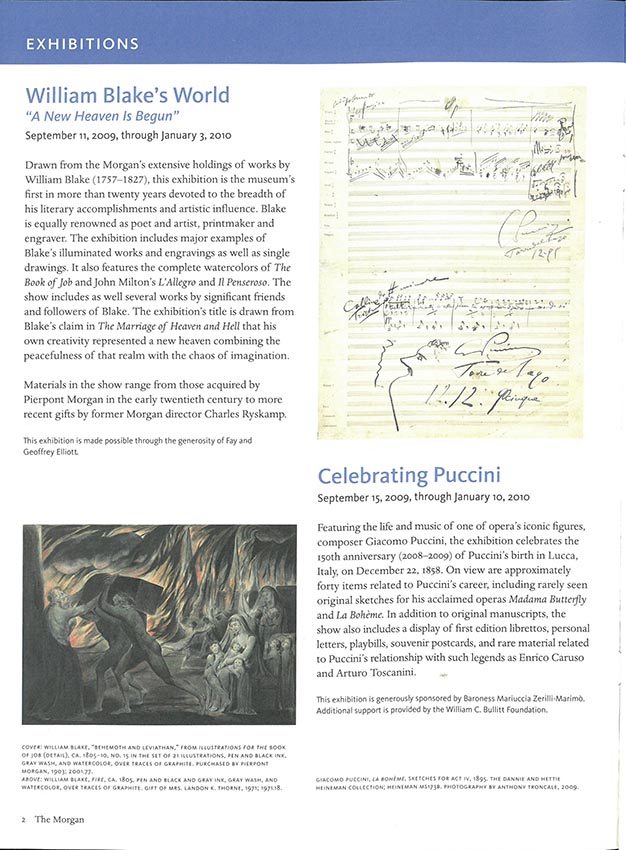 EXHIBITIONS
William Blake's World
"A New Heaven Is Begun"
September 11, 2009, through January 3, 2010
Drawn from the Morgan's extensive holdings of works by
William Blake (1757–1827), this exhibition is the museum's
first in more than twenty years devoted to the breadth of
his literary accomplishments and artistic influence. Blake
is equally renowned as poet and artist, printmaker and
engraver. The exhibition includes major examples of
Blake's illuminated works and engravings as well as single
drawings. It also features the complete watercolors of The
Book of Job and John Milton's L'Allegro and Il Penseroso. The
show includes as well several works by significant friends
and followers of Blake. The exhibition's title is drawn from
Blake's claim in The Marriage of Heaven and Hell that his
own creativity represented a new heaven combining the
peacefulness of that realm with the chaos of imagination.
Materials in the show range from those acquired by
Pierpont Morgan in the early twentieth century to more
recent gifts by former Morgan director Charles Ryskamp.
This exhibition is made possible through the generosity of Fay and
Geoffrey Elliott.
COVER: WILLIAM BLAKE, "BEHEMOTH AND LEVIATHAN," FROM ILLUSTRATIONS FOR THE BOOK
OF JOB (DETAIL), CA. 1805–10, NO. 15 IN THE SET OF 21 ILLUSTRATIONS, PEN AND BLACK INK,
GRAY WASH, AND WATERCOLOR, OVER TRACES OF GRAPHITE. PURCHASED BY PIERPONT
MORGAN, 1903; 2001.77.
ABOVE: WILLIAM BLAKE, FIRE, CA. 1805, PEN AND BLACK AND GRAY INK, GRAY WASH, AND
WATERCOLOR, OVER TRACES OF GRAPHITE. GIFT OF MRS. LANDON K. THORNE, 1971; 1971.18.
2 The Morgan
Puccini
12.95
Puccini
Torre del Lago
12.12.
Celebrating Puccini
September 15, 2009, through January 10, 2010
Featuring the life and music of one of opera's iconic figures,
composer Giacomo Puccini, the exhibition celebrates the
150th anniversary (2008–2009) of Puccini's birth in Lucca,
Italy, on December 22, 1858. On view are approximately
forty items related to Puccini's career, including rarely seen
original sketches for his acclaimed operas Madama Butterfly
and La Bohème. In addition to original manuscripts, the
show also includes a display of first edition librettos, personal
letters, playbills, souvenir postcards, and rare material related
to Puccini's relationship with such legends as Enrico Caruso
and Arturo Toscanini.
This exhibition is generously sponsored by Baroness Mariuccia Zerilli-Marimò.
Additional support is provided by the William C. Bullitt Foundation.
GIACOMO PUCCINI, LA BOHÈME, SKETCHES FOR ACT IV, 1895. THE DANNIE AND HETTIE
HEINEMAN COLLECTION; HEINEMAN MS173B. PHOTOGRAPHY BY ANTHONY TRONCALE, 2009.